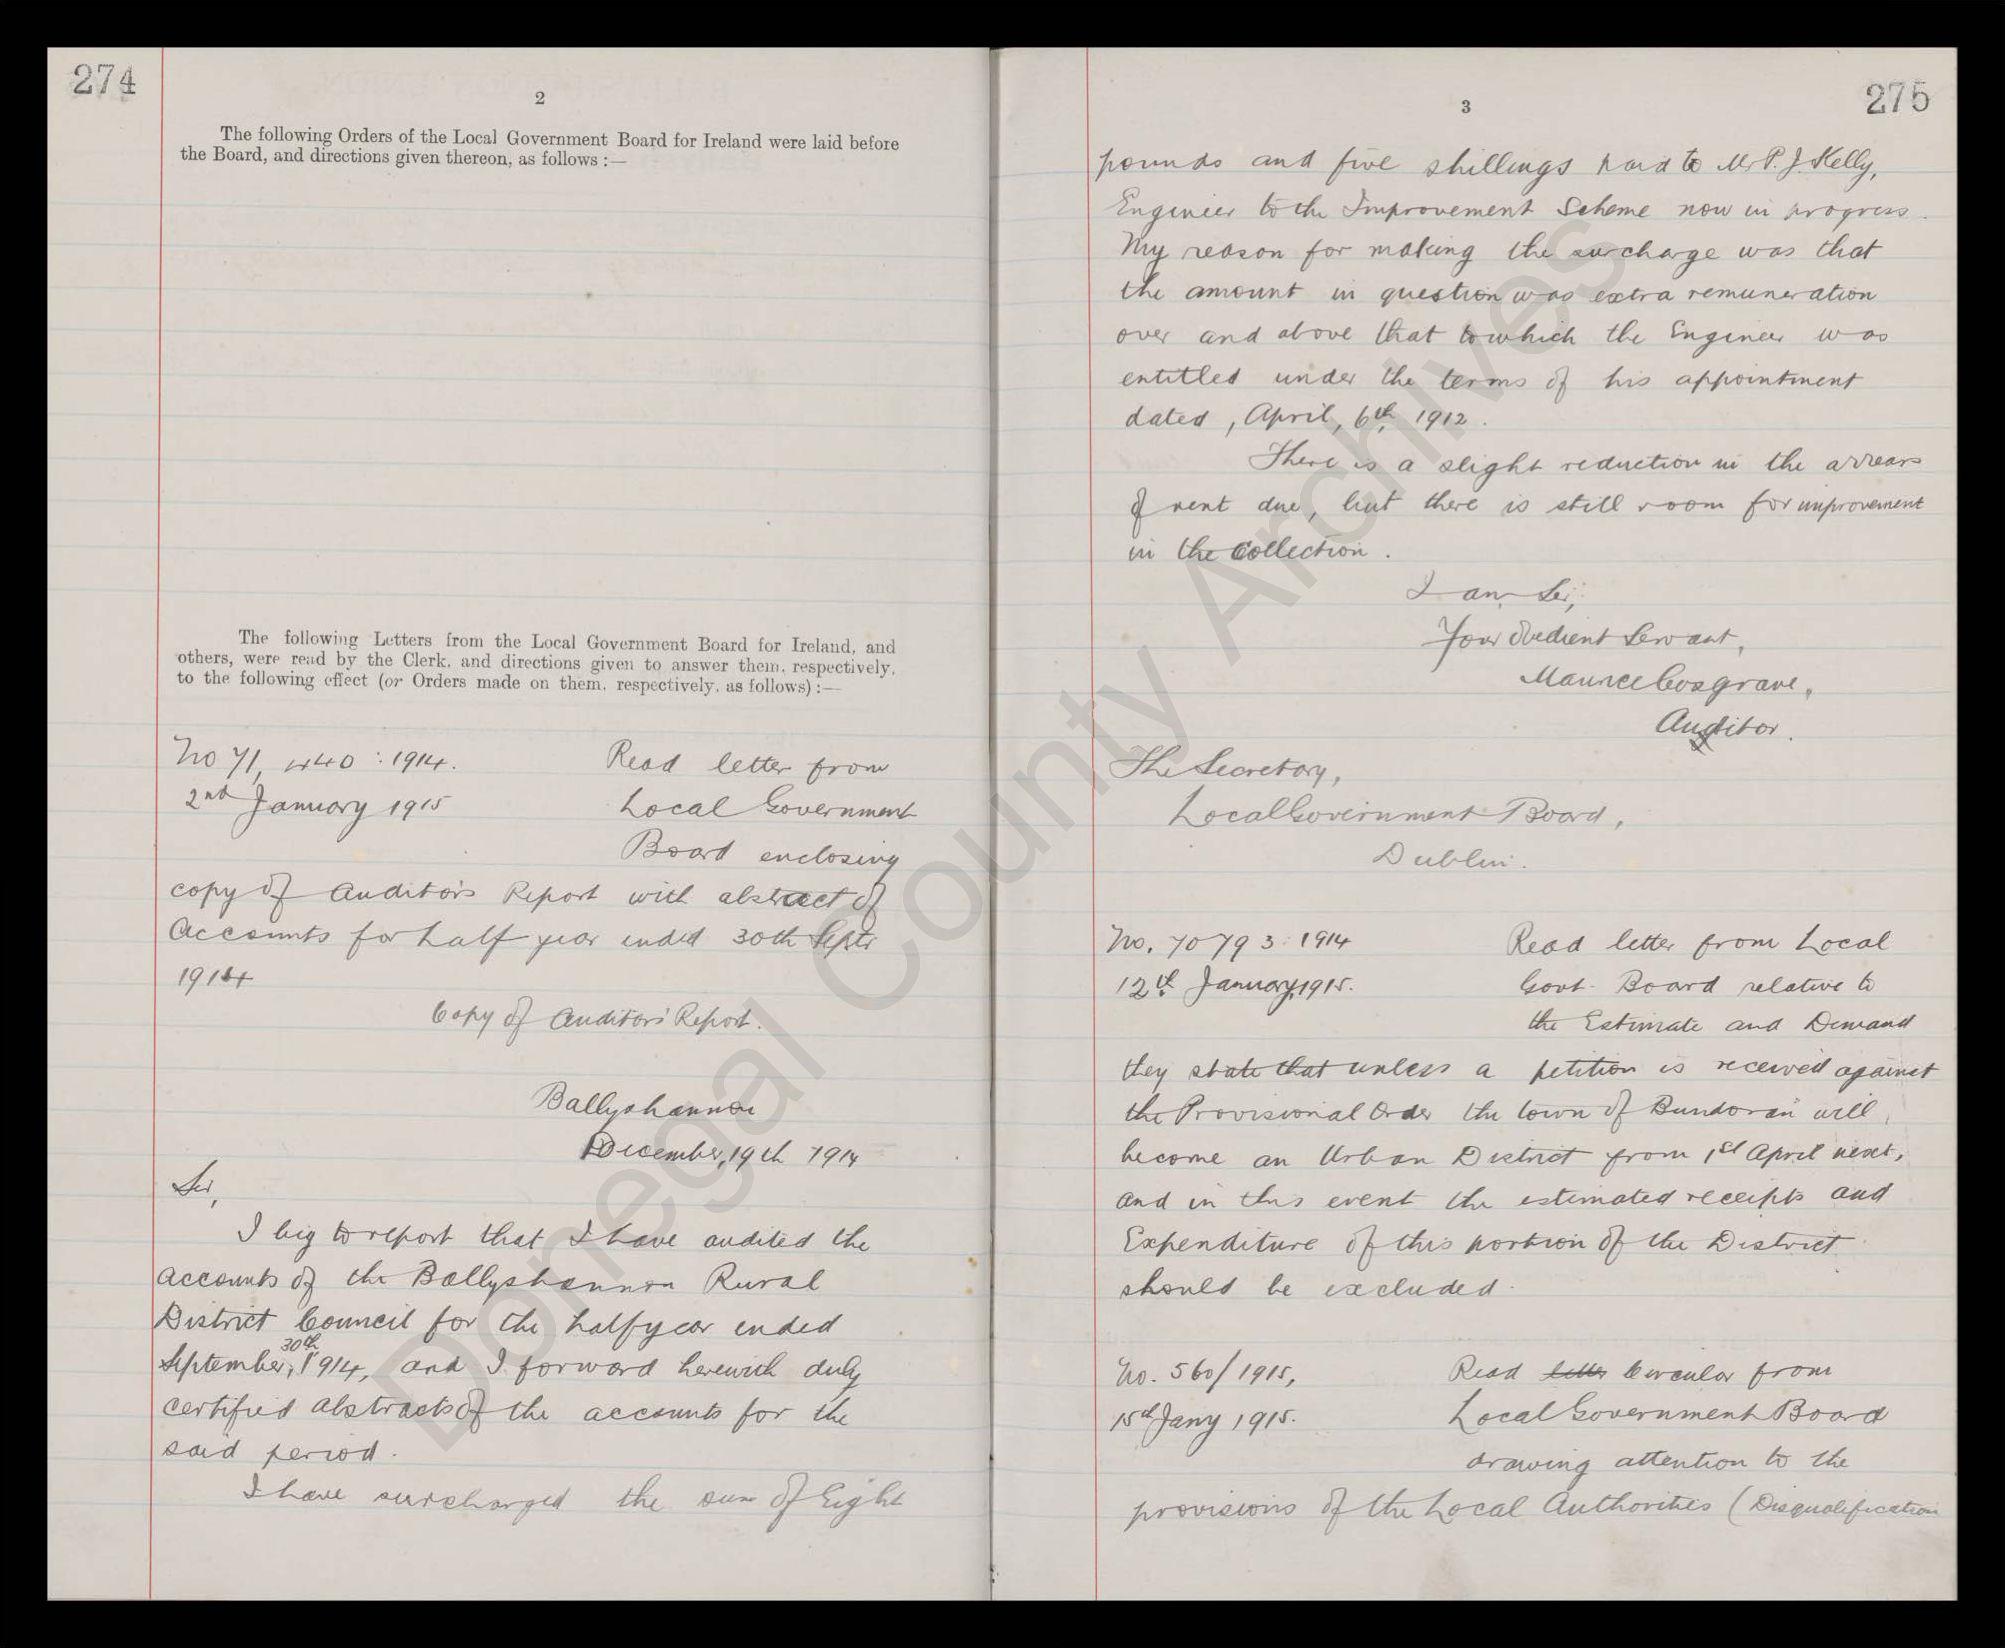 274
2
The following Orders of the Local Government Board for Ireland were laid before
the Board, and directions given thereon, as follows :—
The following Letters from the Local Government Board for Ireland, and
others, were read by the Clerk, and directions given to answer them, respectively,
to the following effect (or Orders made on them, respectively, as follows) :—
No 71,440 : 1914. Read letter from
2nd January 1915 Local Government
Board enclosing
copy of Auditor's Report with abstract of
Accounts for half year ended 30th Septr
1914
Copy of Auditors' Report.
Ballyshannon
December, 19th 1914
Sir,
I beg to report that I have audited the
accounts of the Ballyshannon Rural
District Council for the halfyear ended
September, 30th 1914, and I forward herewith duly
certified abstracts of the accounts for the
said period.
I have surcharged the sum of Eight
275
3
pounds and five shillings paid to Mr P. J. Kelly,
Engineer to the Improvement Scheme now in progress.
My reason for making the surcharge was that
the amount in question was extra remuneration
over and above that to which the Engineer was
entitled under the terms of his appointment
dated, April, 6th, 1912.
There is a slight reduction in the arrears
of rent due, but there is still room for improvement
in the Collection.
I am Sir,
Your Obedient Servant,
Maurice Cosgrave,
Auditor.
The Secretary,
Local Government Board,
Dublin.
No. 70793 : 1914 Read letter from Local
12th January, 1915. Govt. Board relative to
the Estimate and Demand
they state that unless a petition is received against
the Provisional Order the town of Bundoran will
become an Urban District from 1st April next,
and in this event the estimated receipts and
Expenditure of this portion of the District
should be excluded.
No. 560/1915, Read letter Circular from
15th Jany 1915. Local Government Board
drawing attention to the
provisions of the Local Authorities (Disqualification
Donegal County Archives